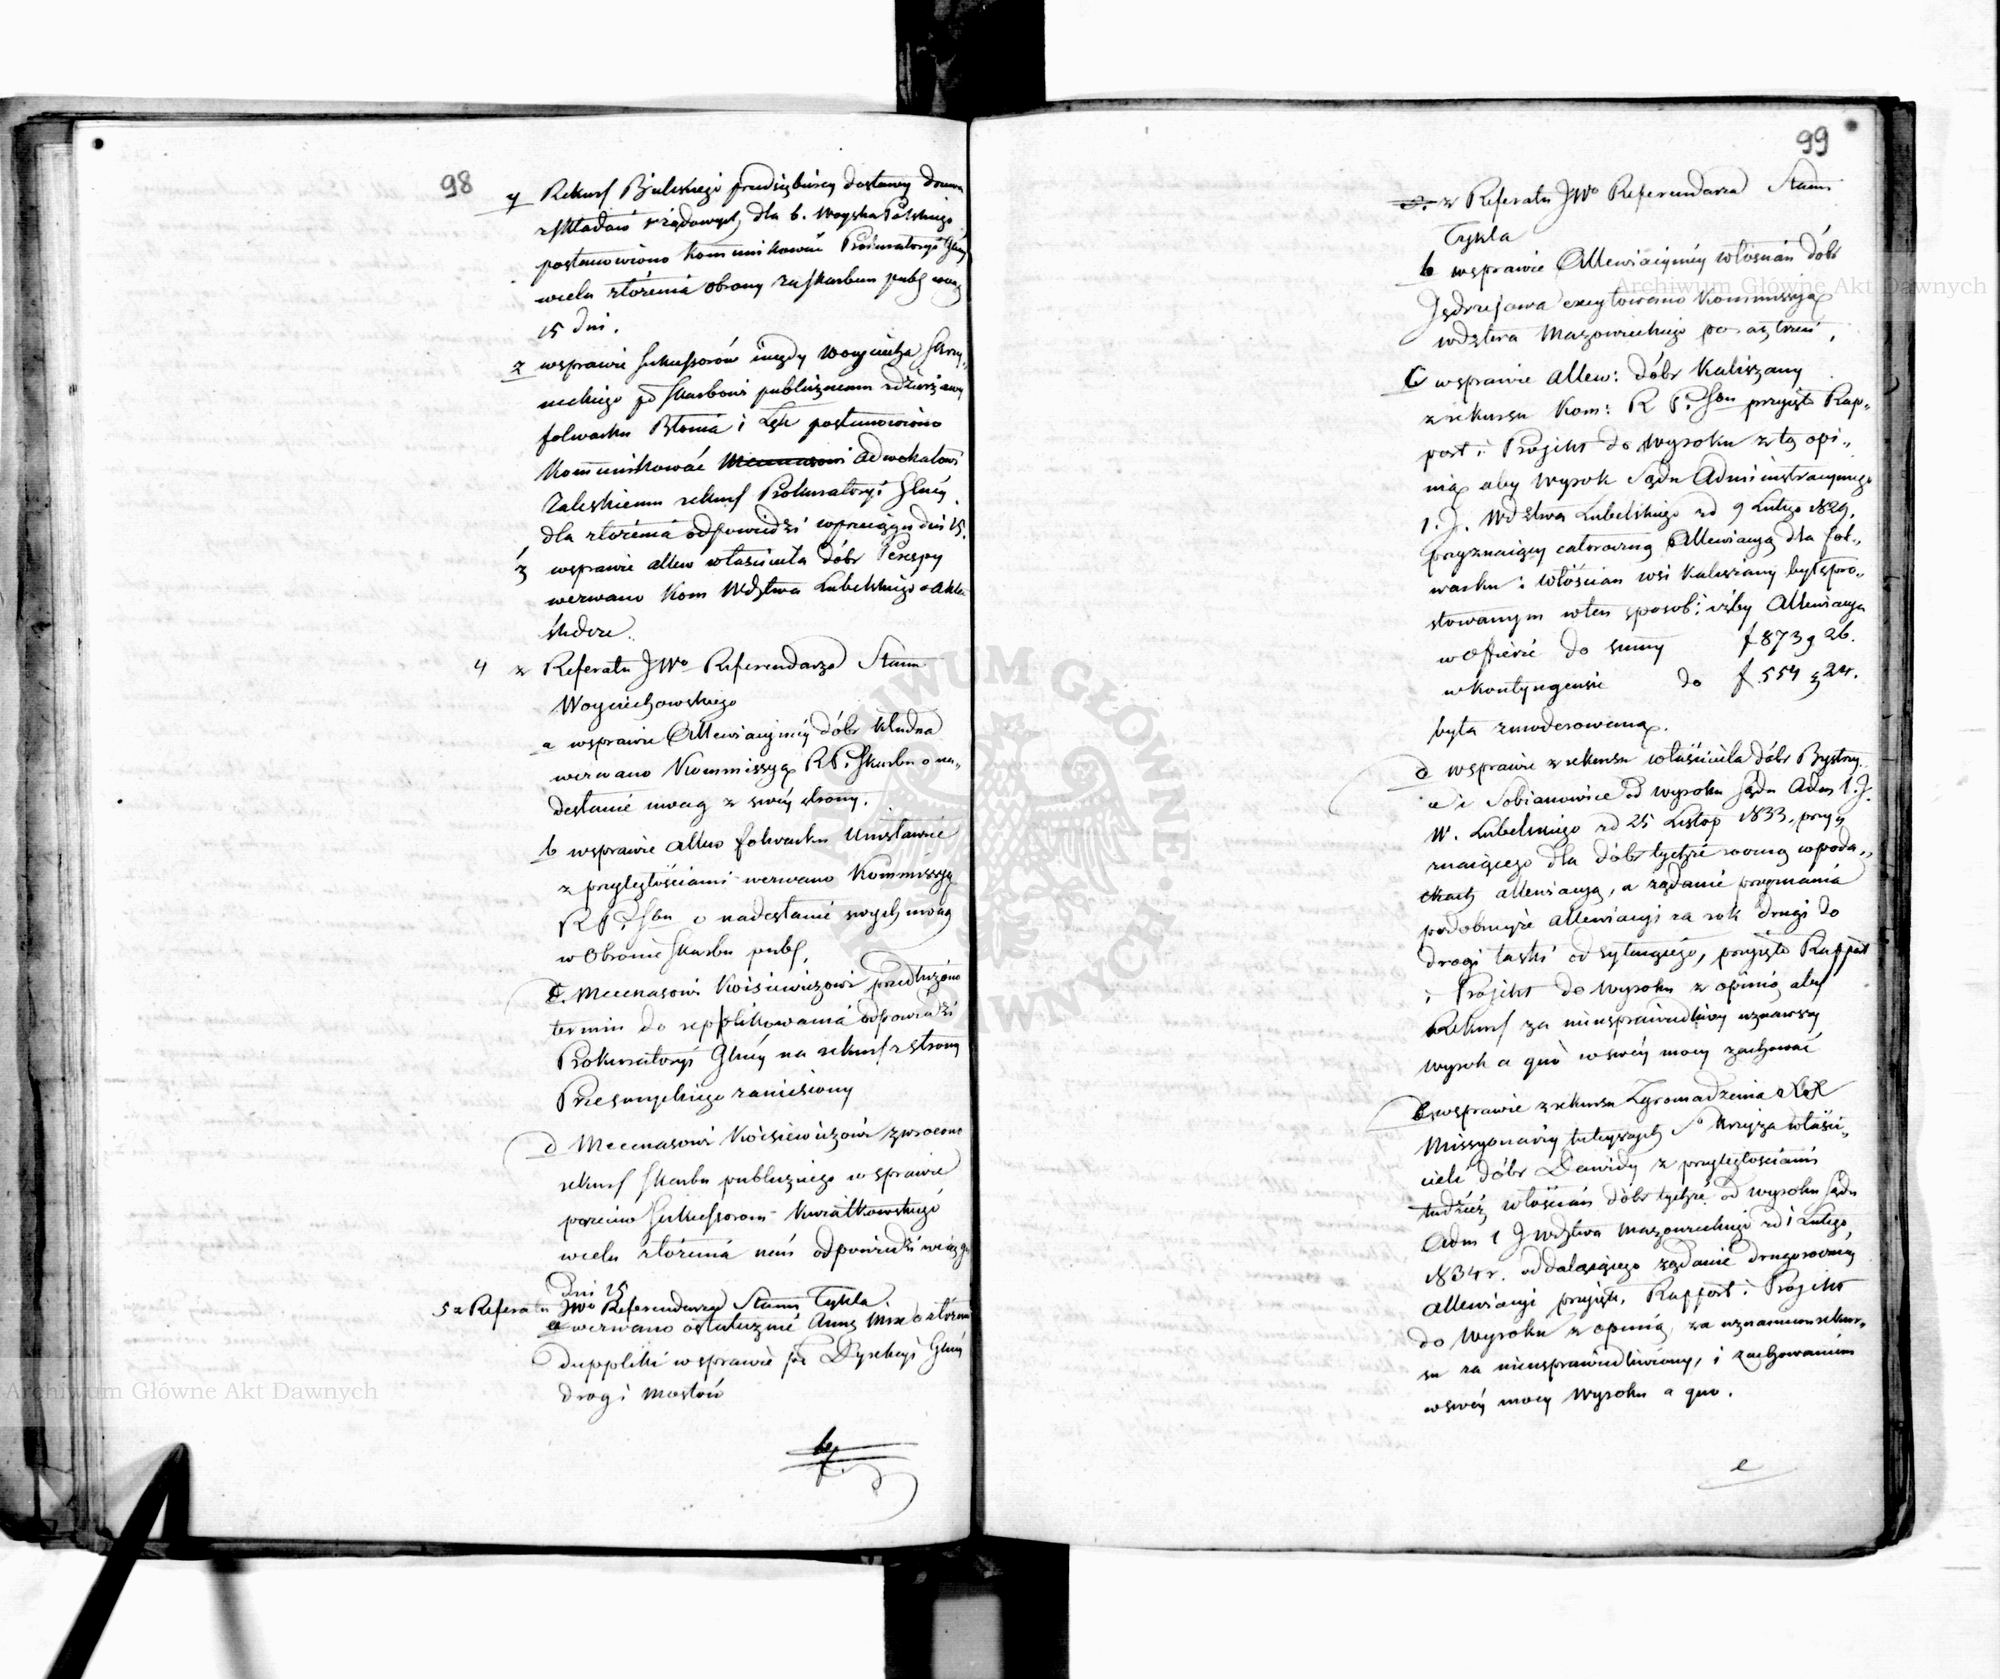 98
y Rekurs Bielskiego przedsiębiercy dostawy drzewa
z składów rządowych dla b. Woyska Polskiego
postanowiono kommunikować Prokuratoryi Glnéy
w celu złożenia obrony za skarbem publ w ciąg
15 dni.
z w sprawie Sukcessorów niegdy Woyciecha
pko Skarbowi publicznemu z dzierżawy
folwarku Błonia i Łąk postanowiono
kommunikować Mecenasowi Adwokatowi
Zaleskiemu rekurs Prokuratoryi Glnéy
dla złożenia odpowiedzi w przeciągu dni 15.
ź w sprawie allew właściciela dóbr Perespy
wezwano Kom Wdztwa Lubelskiego o akta
śledcze.
4 z Referatu JWo Referendarza Stanu
Woyciechowskiego
a w sprawie Allewiacyjnéy dóbr Kludna
wezwano Kommissyą R P. i Skarbu o na„
desłanie uwag z swéy strony.
b w sprawie allew folwarku
z przyległościami wezwano Kommissyą
R P i Sbu o nadesłanie swych uwag
w obronie Skarbu publ.
c. Mecenasowi Koisiewiczowi przedłużono
termin do repplikowania odpowiedzi
Prokuratoryi Glnéy na rekurs z strony
zaniesiony
d Mecenasowi Koisiewiczowi zwrócono
rekurs Skarbu publicznego w sprawie
przeciwo Sukcessorom Kwiatkowskiego
w celu złożenia nań odpowiedzi w ciągu
Dni 15
5 z Referatu JWo Referendarza Stanu Tykla
a wezwano ostatecznie Annę o złożenie
duppliki w sprawie pko Dyrekcyi Glnéy
dróg i mostów
b.
99
z Referatu JWo Referendarza Stanu
Tykla
b w sprawie Allewiacyinéy włościan dóbr
Jędrzejowa excytowano Kommissyą
wdztwa Mazowieckiego po raz trzeci,
C w sprawie allew: dóbr Kaliszany
z rekursu Kom: R P. i Sbu przyięto Rap„
port i Projekt do Wyroku z tą opi„
nią aby Wyrok Sądu Administracyinego
1. J. Wdztwa Lubelskiego z d 9 Lutego 1829.
przyznaiący całoroczną Allewiacyą dla fol„
warku i włościan wsi Kaliszany był spro„
stowanym w ten sposób: iżby Allewiacya
w Ofierze do summy f 873 g 26.
w kontyngensie do f 554 g 24.
była zmoderowaną.
d w sprawie z rekursu właściciela dóbr Bystrzy„
ca i Sobianowice od wyroku Sądu Adm 1. J.
W. Lubelskiego z d 25 Listop 1833. przy„
znaiącego dla dóbr tychże roczną w poda„
tkach allewiacyą, a żądanie przyznania
podobneyże allewiacyi za rok drugi do
drogi łaski odsyłaiącego, przyięto Rapport
i Projekt do Wyroku z opinią aby
Rekurs za niesprawiedliwy uznawszy
wyrok a quo w swéy mocy zachować
e w sprawie z rekursu Zgromadzenia XX
Missyonarzy tuteyszych So Krzyża właści„
cieli dóbr Dawidy z przyległościami
tudzież włościan dóbr tychże od wyroku Sądu
Adm 1 J wdztwa Mazowieckiego z d 1 Lutego
1834 r. oddalaiącego żądanie drugoroczney
allewiacyi przyięto, Rapport i Projekt
do Wyroku z opinią za uznaniem rekur„
su za niesprawiedliwiony, i zachowaniem
w swéy mocy Wyroku a quo.
e
Archiwum Główne Akt Dawnych
Archiwum Główne Akt Dawnych
ARCHIWUM GŁÓWNE AKT DAWNYCH